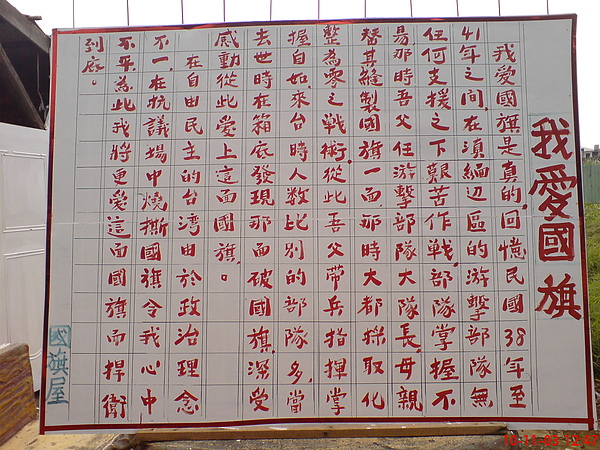 我愛國旗
我愛國旗是真的,回憶民國38年至
41年之間,在滇緬边區的游擊部隊無
任何支援之下艱苦作戰,部隊掌握不
易那時吾父任游擊部隊大隊長,母親
替其縫製國旗一面,那時大都採取化
整為零之戰術,從此吾父帶兵指揮掌
握自如,來台時人数比别的部隊多,當
去世時在箱底發現那面破國旗,深受
感動從此愛上這面國旗。
在自由民主的台灣由於政治理念
不一,在抗議場中燒撕國旗令我心中
不平,為此我將更愛這面國旗而捍衛
到底。
國旗屋